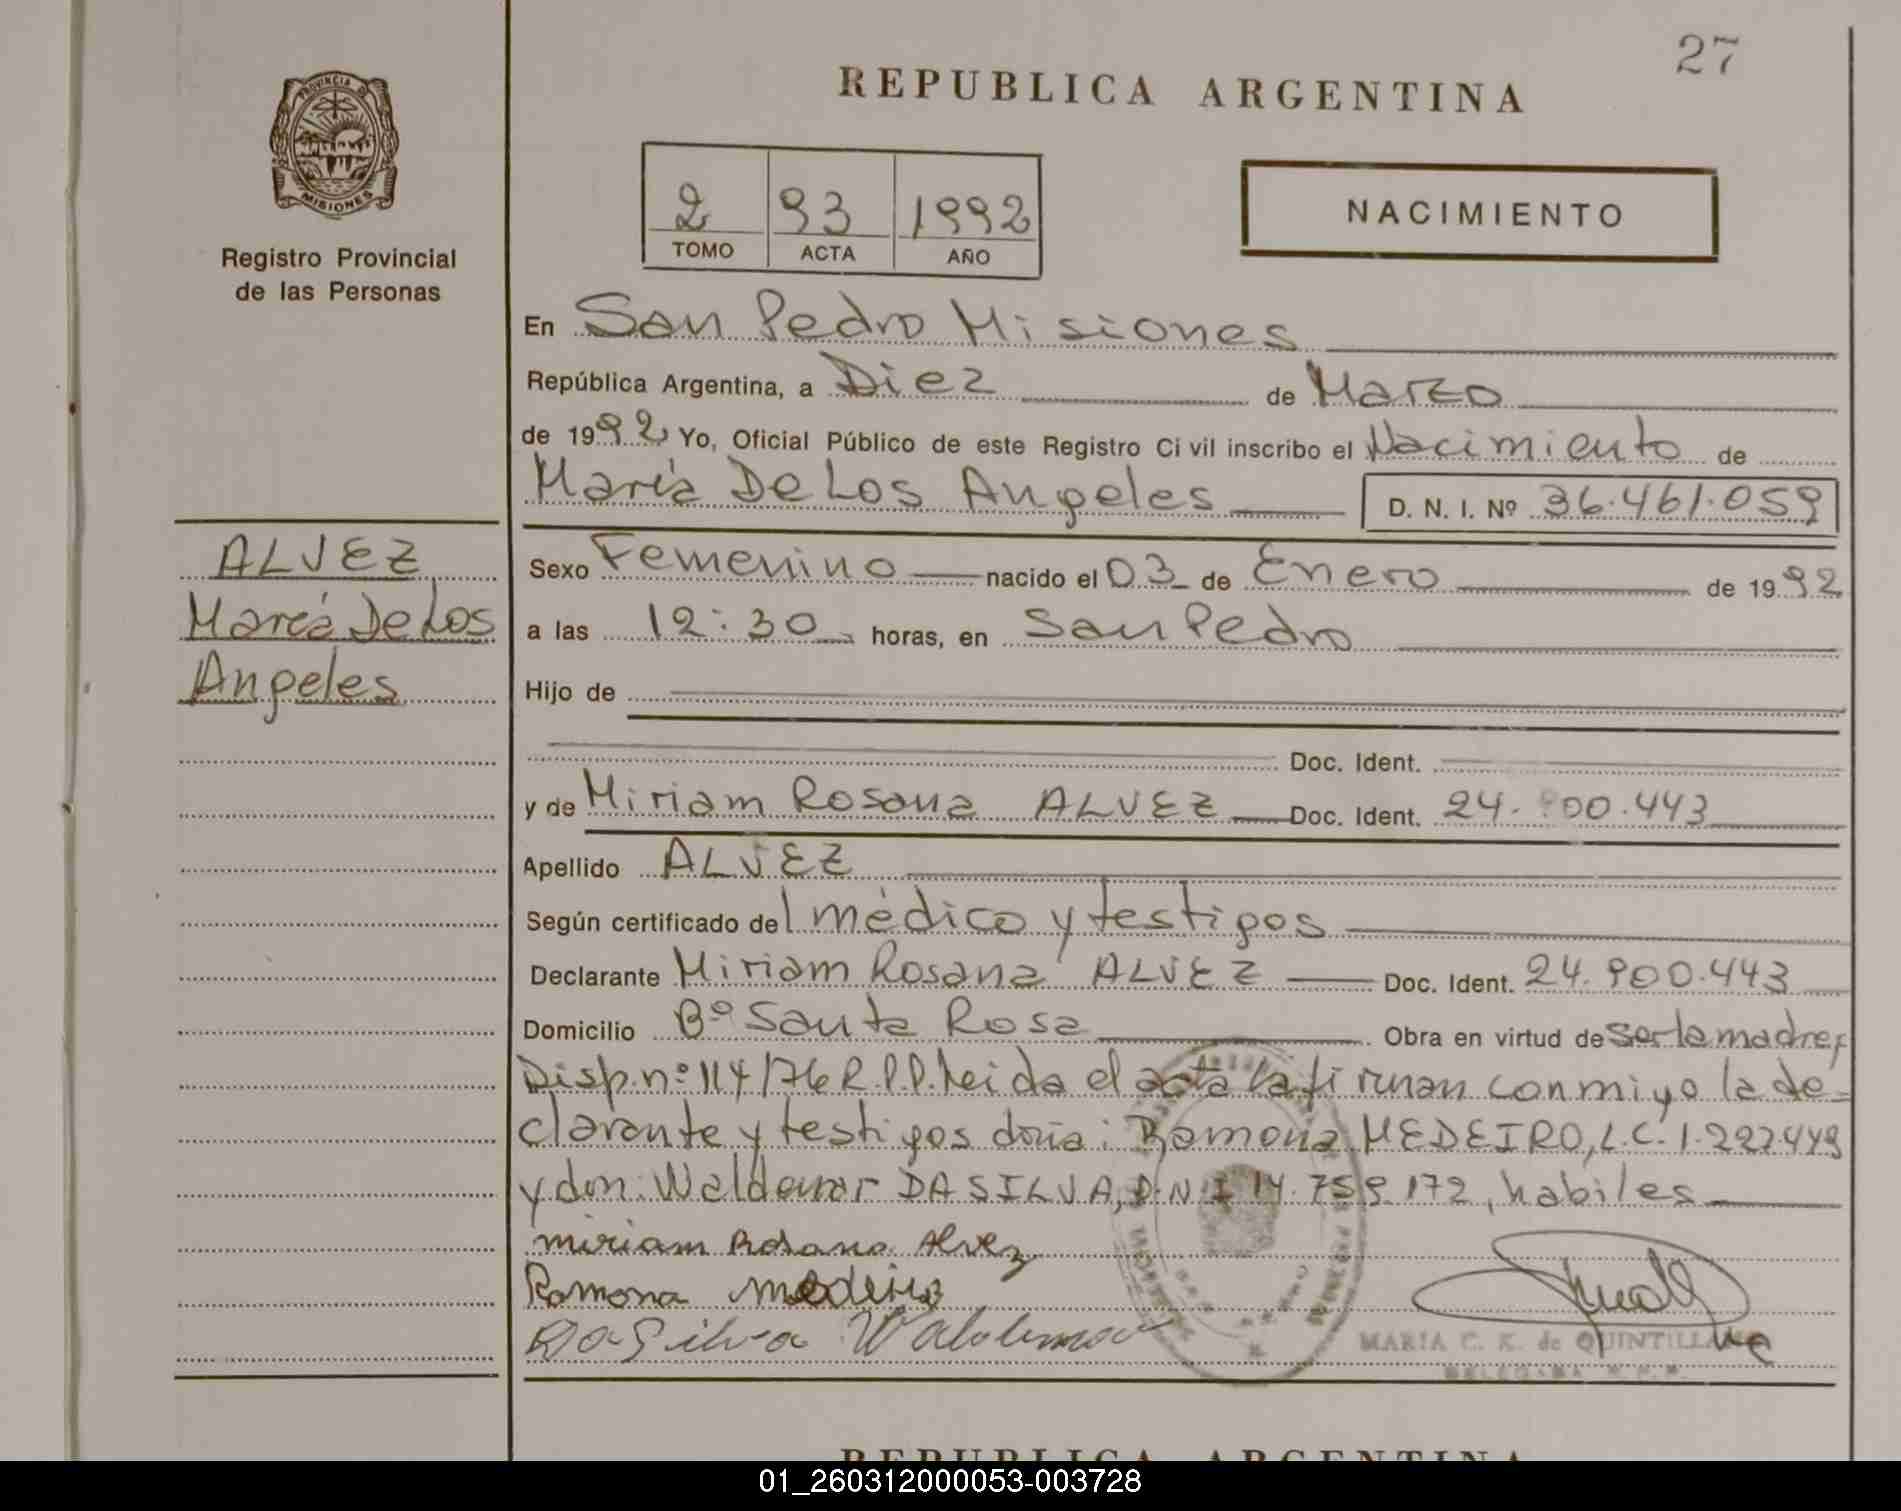 27
REPUBLICA ARGENTINA
PROVINCIA DE
MISIONES
Registro Provincial
de las Personas
2 93 1992
TOMO ACTA AÑO
NACIMIENTO
En San Pedro Misiones
República Argentina, a Diez de Marzo
de 1992 Yo, Oficial Público de este Registro Ci vil inscribo el Nacimiento de
María De Los Angeles D. N. I. Nº 36.461.059
ALVEZ
María De Los
Angeles
Sexo Femenino nacido el 03 de Enero de 1992
a las 12:30 horas, en San Pedro
Hijo de
Doc. Ident.
y de Miriam Rosana ALVEZ Doc. Ident. 24.900.443
Apellido ALVEZ
Según certificado del médico y testigos
Declarante Miriam Rosana ALVEZ Doc. Ident. 24.900.443
Domicilio Bº Santa Rosa Obra en virtud de ser la madre,
Disp.nº 114/76 R.P.P. Leida el acta la firman conmigo la de=
clarante y testigos doña: Ramona MEDEIRO, L.C. 1.227.449
y don: Waldemar DA SILVA, D.N.I 14.759.172, habiles
miriam Rosana Alvez
Ramona medeiro
Da Silva Waldemar
MARIA C. K. de QUINTILLANA
DELEGADA R.P.P.
REPUBLICA ARGENTINA
01_260312000053-003728